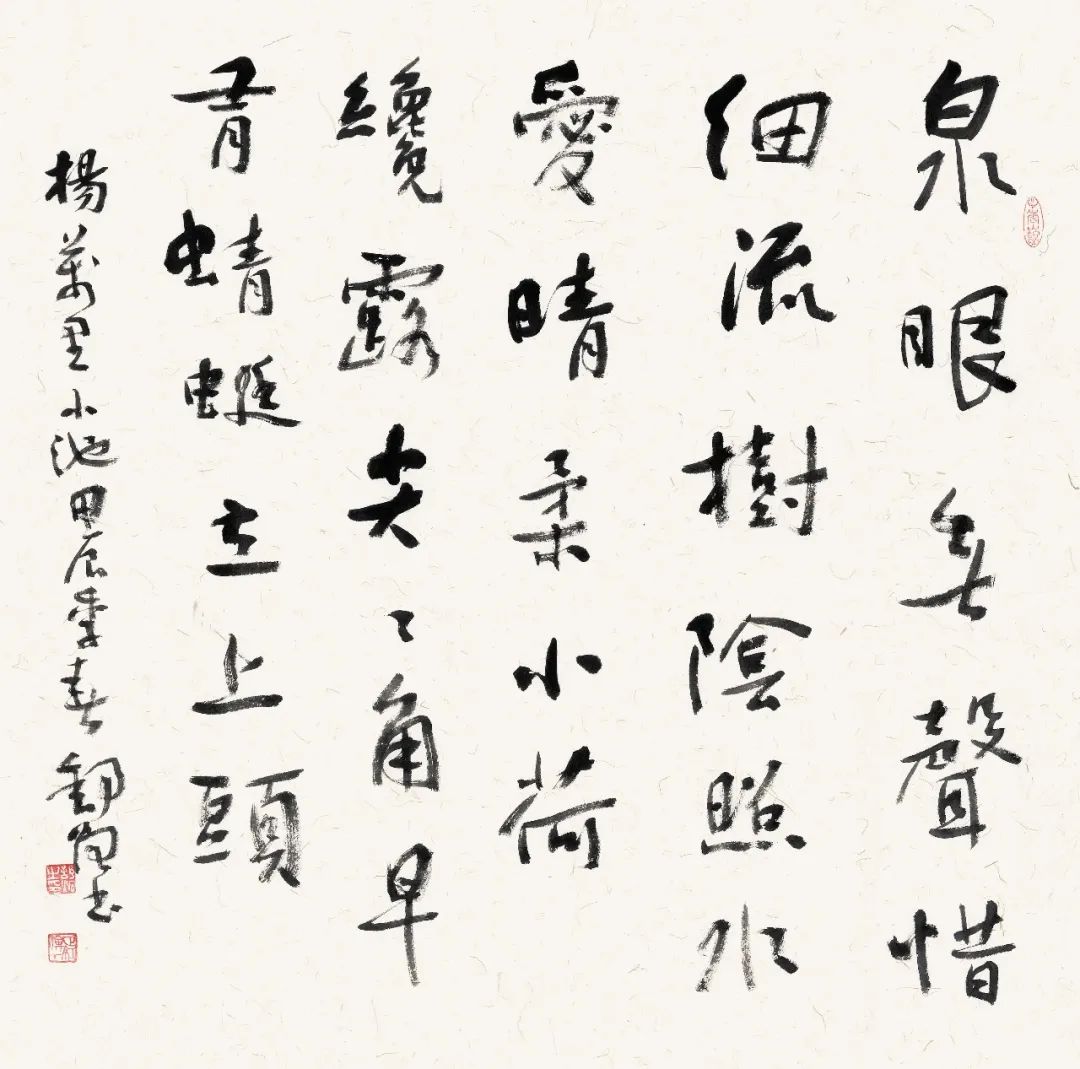 泉眼無聲惜
細流樹陰照水
愛晴柔小荷
纔露尖〻角早
有蜻蜓立上頭
楊萬里小池甲辰季春書